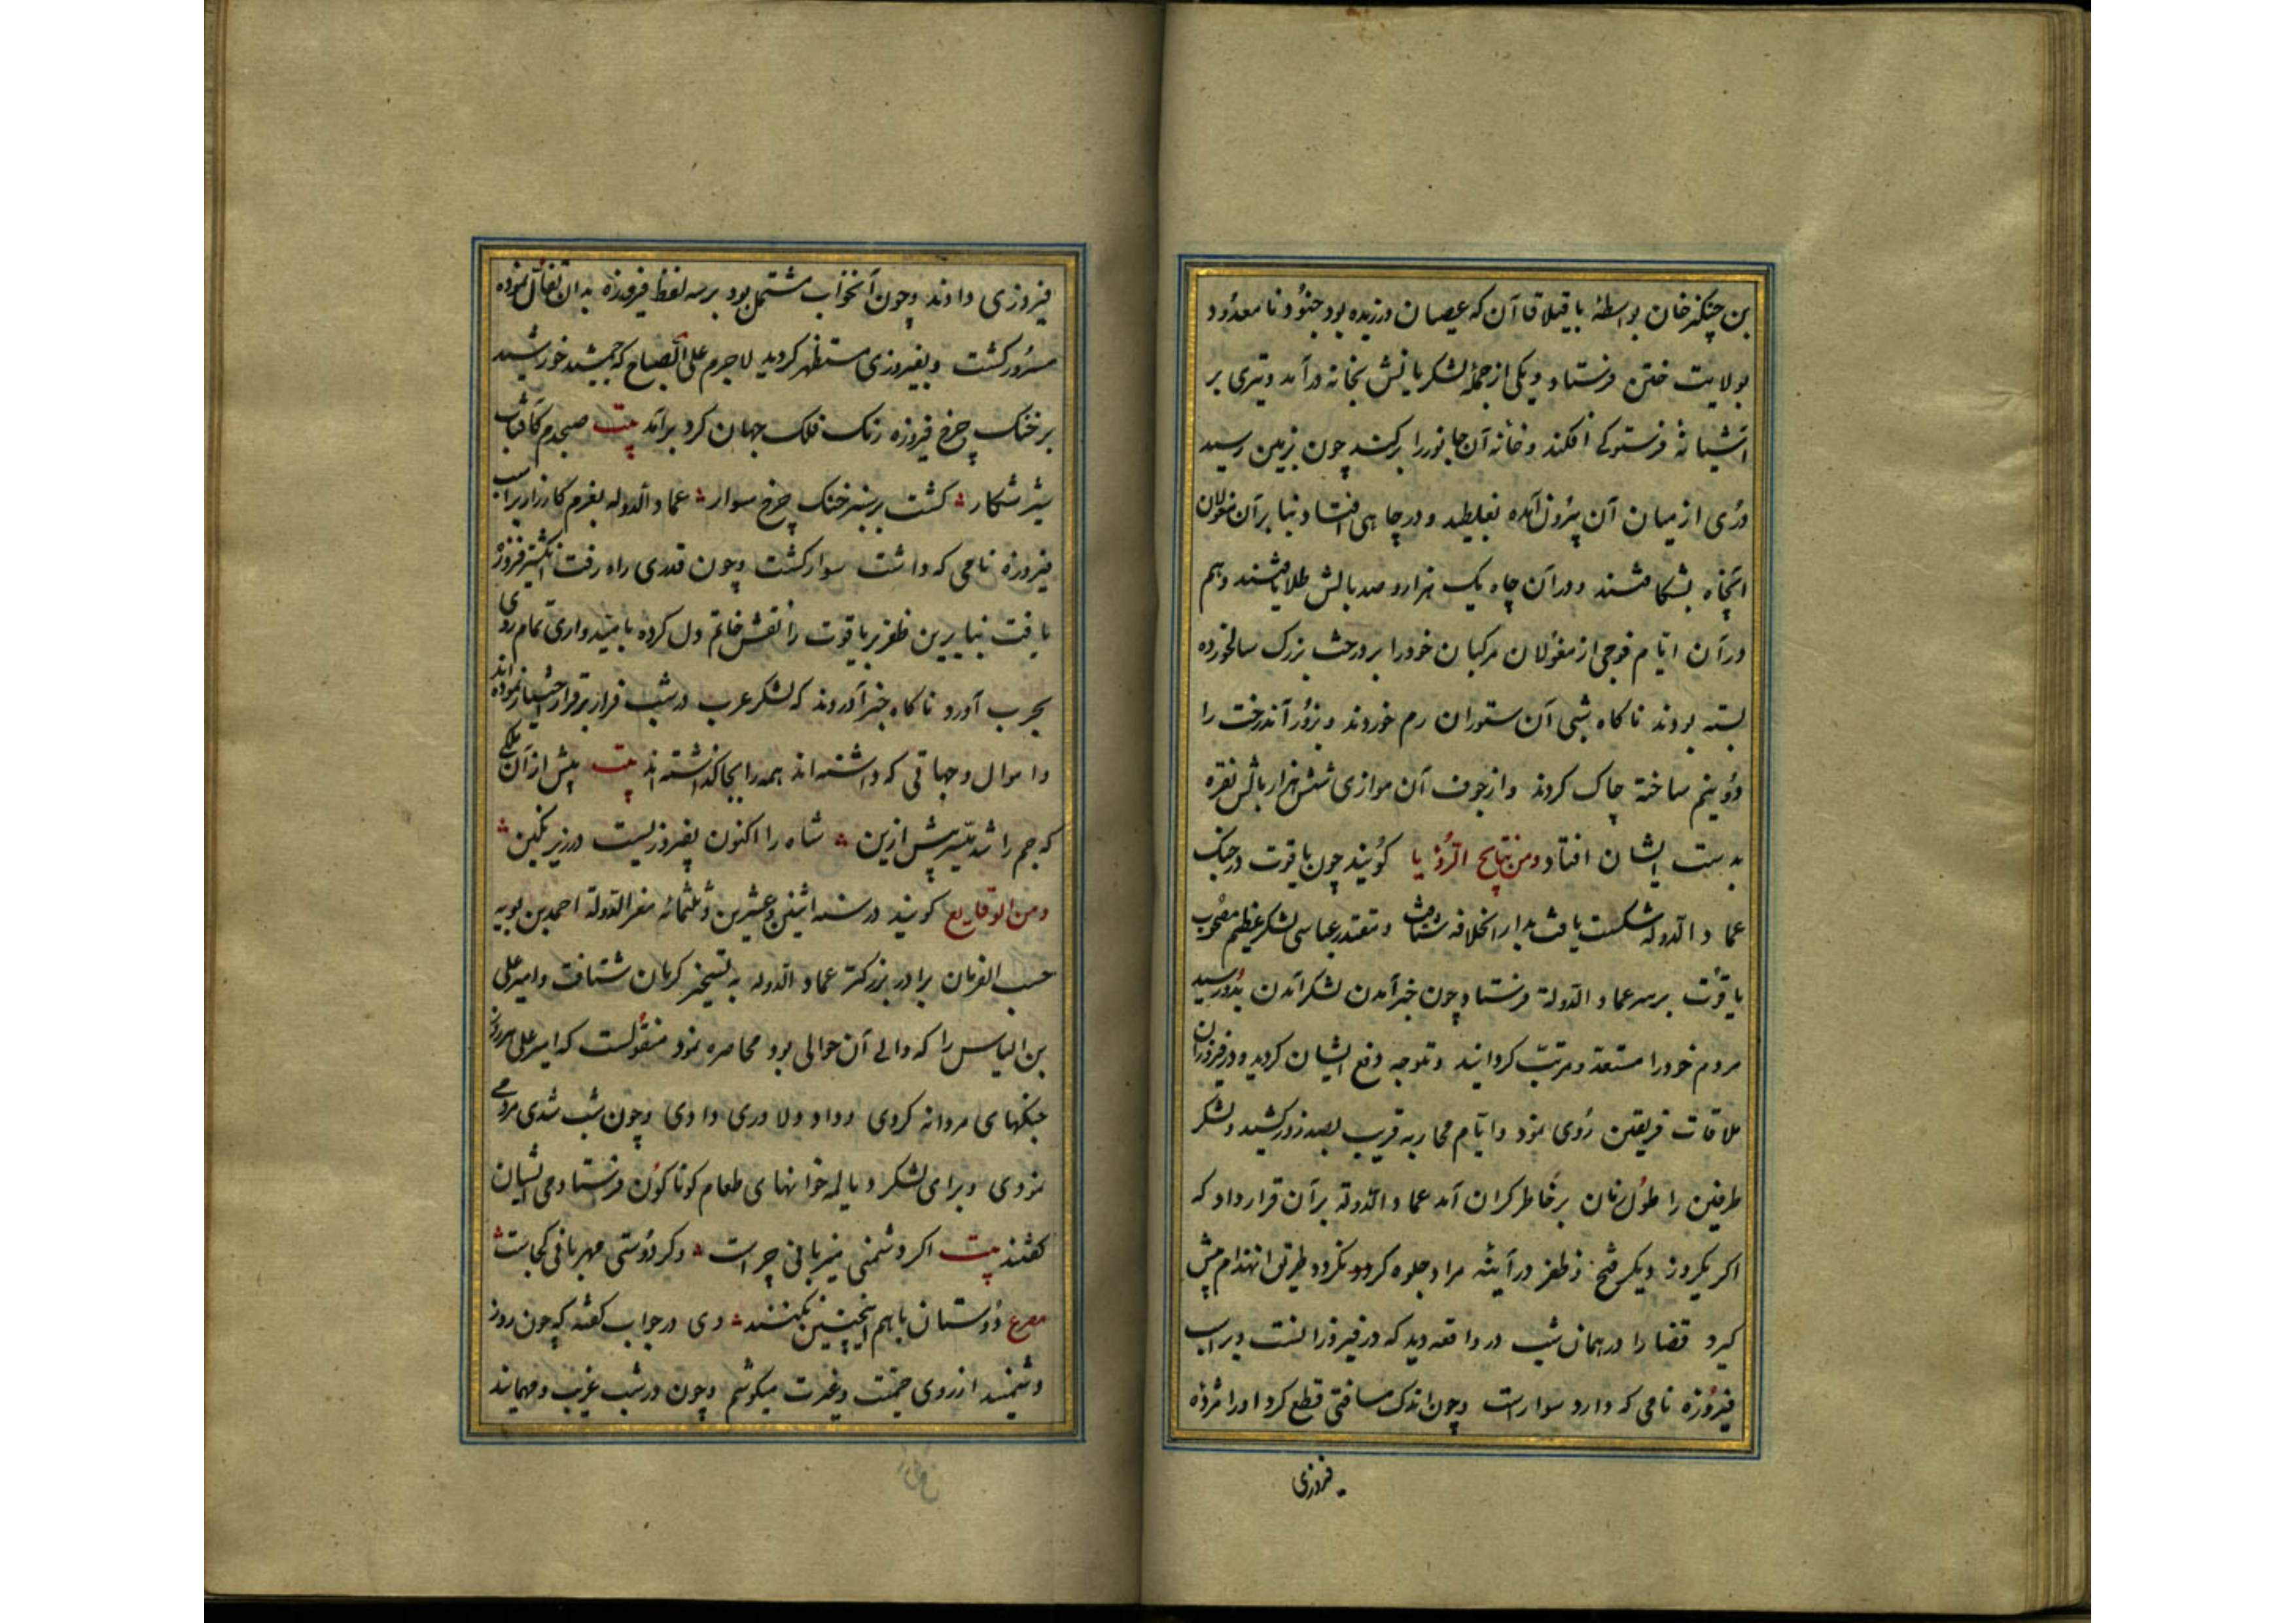 بن چنکیزخان بواسطهٔ بایقیلاقاآن که عصیان ورزیده بود جنود نامعدود
بولایت ختن فرستاد و یکی از جملهٔ لشکریانش بخانه درآمد و تیری بر
آشیانهٔ فرستوکی افکند و خانه آن جانور را برکند چون بزمین رسید
دری از میان آن بیرون آمده بغلطید و در چاهی افتاد بنابرآن مغولان
آنچاه بشکافتند و در آن چاه یک هزار و صد بالش طلا یافتند و هم
در آن ایام فوجی از مغولان مرکبان خود را بر درخت بزرک سالخورده
بسته بودند ناکاه شبی آن ستوران رم خوردند و بزور آندرخت را
دو نیم ساخته چاک کردند و از جوف آن موازی شش هزار بالش نقره
بدست ایشان افتاد ومن نتایج الرؤیا کویند چون یاقوت در جنک
عماد الدوله شکست یافت بدار الخلافه شتافت و مقتدر عباسی لشکر عظیم مصحوب
یاقوت بر سر عماد الدوله فرستاد چون خبر آمدن لشکر آمدن بدو رسید
مردم خود را مستعد و مرتب کردانید و متوجه دفع ایشان کردید و در فیروزان
ملاقات فریقین روی نمود و ایام محاربه قریب بصد روز کشید و لشکر
طرفین را طول زمان بر خاطر کران آمد عماد الدوله برآن قرار داد که
اکر یکروز دیکر فتح و ظفر در آینه مراد جلوه کر نکردد طریق انهزام پیش
کیرد قضا را در همان شب در واقعه دید که در فیروزانست و بر اسب
فیروزه نامی که دارد سوار است و چون اندک مسافتی قطع کرد او را مژده
فیروزی
فیروزی دادند و چون آنخواب مشتمل بود بر سه لفظ فیروزه بدان تفأل نموده
مسرور کشت و بفیروزی مستظهر کردید لاجرم علی الصباح که جمشید خورشید
بر خنک چرخ فیروزه رنک فلک جهان کرد برآمد بیت صبحدم کافتاب
شیر شکار کشت بر سبز خنک چرخ سوار عماد الدوله بعزم کارزار بر اسب
فیروزه نامی که داشت سوار کشت و چون قدری راه رفت انکشتر فیروزه
یافت بنابرین ظفر بر یاقوت را نقش خاتم دل کرده بامیدواری تمام روی
بحرب آورد ناکاه خبر آوردند که لشکر عرب در شب فرار بر قرار اختیار نموده اند
و اموال و جهاتی که داشته اند همه را بجا کذاشته اند بیت پیش از آن ملکی
که جم را شد میسر پیش ازین شاه را اکنون بفیروزیست در زیر نکین
ومن الوقایع کویند در سنه اثنین و عشرین و ثلثمائه معز الدوله احمد بن بویه
حسب الفرمان برادر بزرکتر عماد الدوله به تسخیر کرمان شتافت و امیر علی
بن الیاس را که والی آن حوالی بود محاصره نمود منقولست که امیر علی هر روز
جنکهای مردانه کردی و داد دلاوری دادی و چون شب شدی مردمی
نمودی و برای لشکر دیالمه خوانهای طعام کوناکون فرستادمی ایشان
کفتند بیت اکر دشمنی میزبانی چراست وکر دوستی مهربانی کجاست
مصرع دوستان با هم اینچنین نکنند وی در جواب کفت که چون روز
دشمنید از روی حمیت و غیرت میکوشم و چون در شب غریب و مهمانید